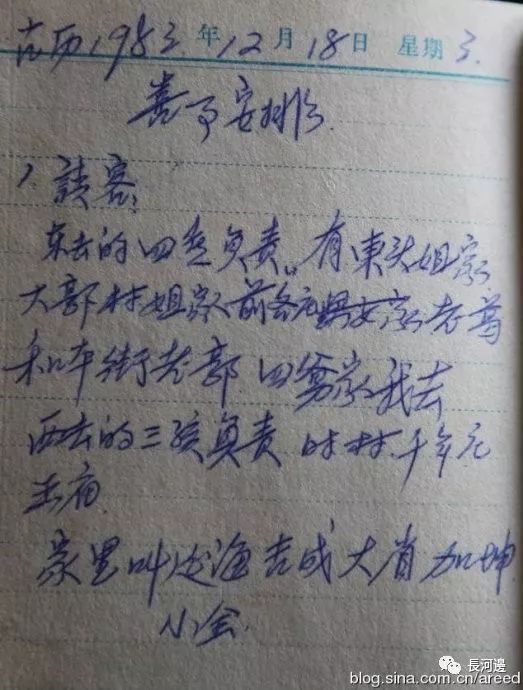 古历1983年12月18日 星期3.
喜事安排
1. 請客:
东去的四季负责。有東头姐家
大部村姐家前各元男女家老尊
和本街老部 四爹家我去
西去的三孩负责 时村 千年元
圭庙
家里叫 海 吉成 大省 加坤
小会.
長河邊
blog.sina.com.cn/areed